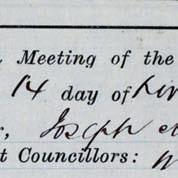 Meeting of the
14 day of
Joseph
t Councillors: